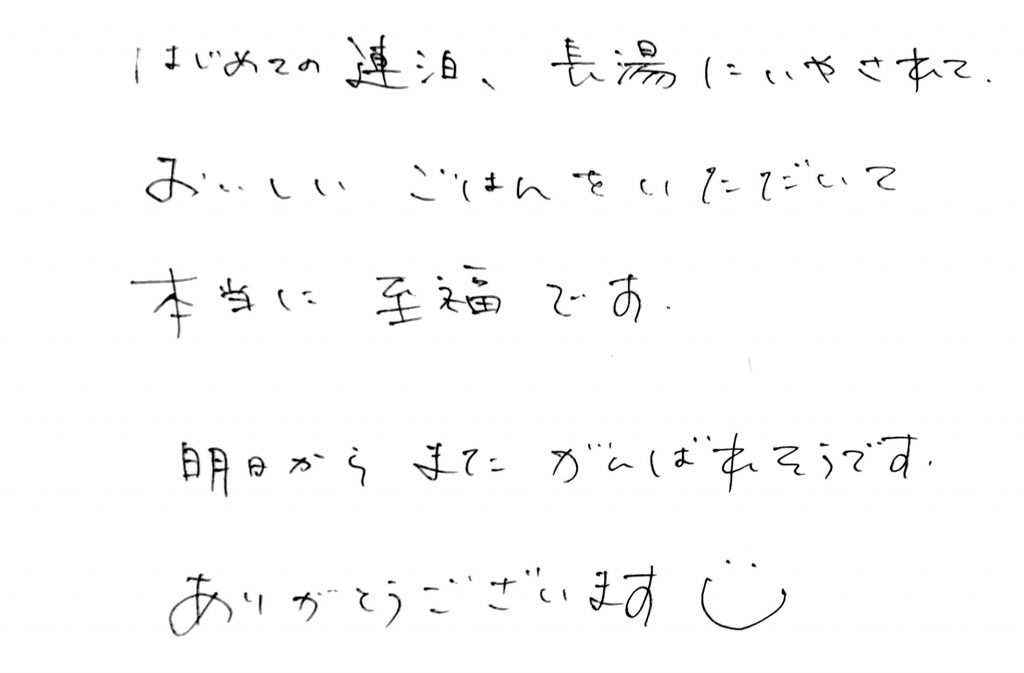 はじめての連泊、長湯にいやされて.
おいしいごはんをいただいて
本当に至福です.
明日からまたがんばれそうです.
ありがとうございます